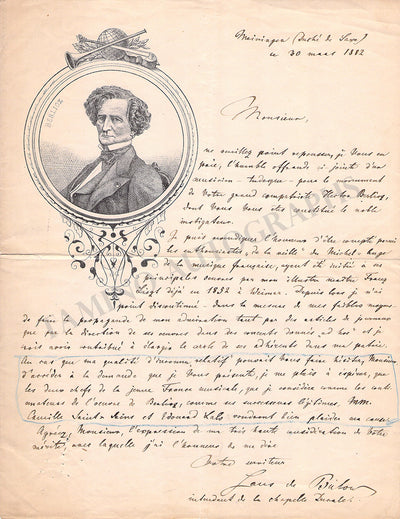 BERLIOZ
Meiningen (Duché de Saxe)
ce 30 mars 1882
Monsieur,
ne veuillez point repousser, je Vous en
prie, l'humble offrande ci jointe d'un
musicien tudesque pour le monument
de Votre grand compatriote Hector Berlioz,
dont Vous Vous êtes constitué le noble
instigateur.
Je puis revendiquer l'honneur d'être compté parmi
les enthousiastes „de la veille" du Michel-Ange
de la musique française, ayant été initié à ses
principales œuvres par mon illustre maître Franz
Liszt déjà en 1852 à Weimar. Depuis lors je n'ai
point discontinué dans la mesure de mes faibles moyens
de faire la propagande de mon admiration tant par des articles de journaux
que par la direction de ses œuvres dans des concerts donnés „ad hoc" et je
crois avoir contribué à élargir le cercle de ses adhérents dans ma patrie.
Au cas que ma qualité d'inconnu relatif pouvait Vous faire hésiter, Monsieur
d'accéder à la demande que je Vous présente, je me plais à espérer, que
les deux chefs de la jeune France musicale, que je considère comme les conti-
nuateurs de l'œuvre de Berlioz, comme ses successeurs légitimes, MM.
Camille Saint-Saëns et Edouard Lalo voudront bien plaider ma cause.
Agréez, Monsieur, l'expression de ma très haute considération de Votre
mérite, avec laquelle j'ai l'honneur de me dire
Votre serviteur
Hans de Bülow
intendant de la chapelle Ducale.
TAMINO AUTOGRAPHS